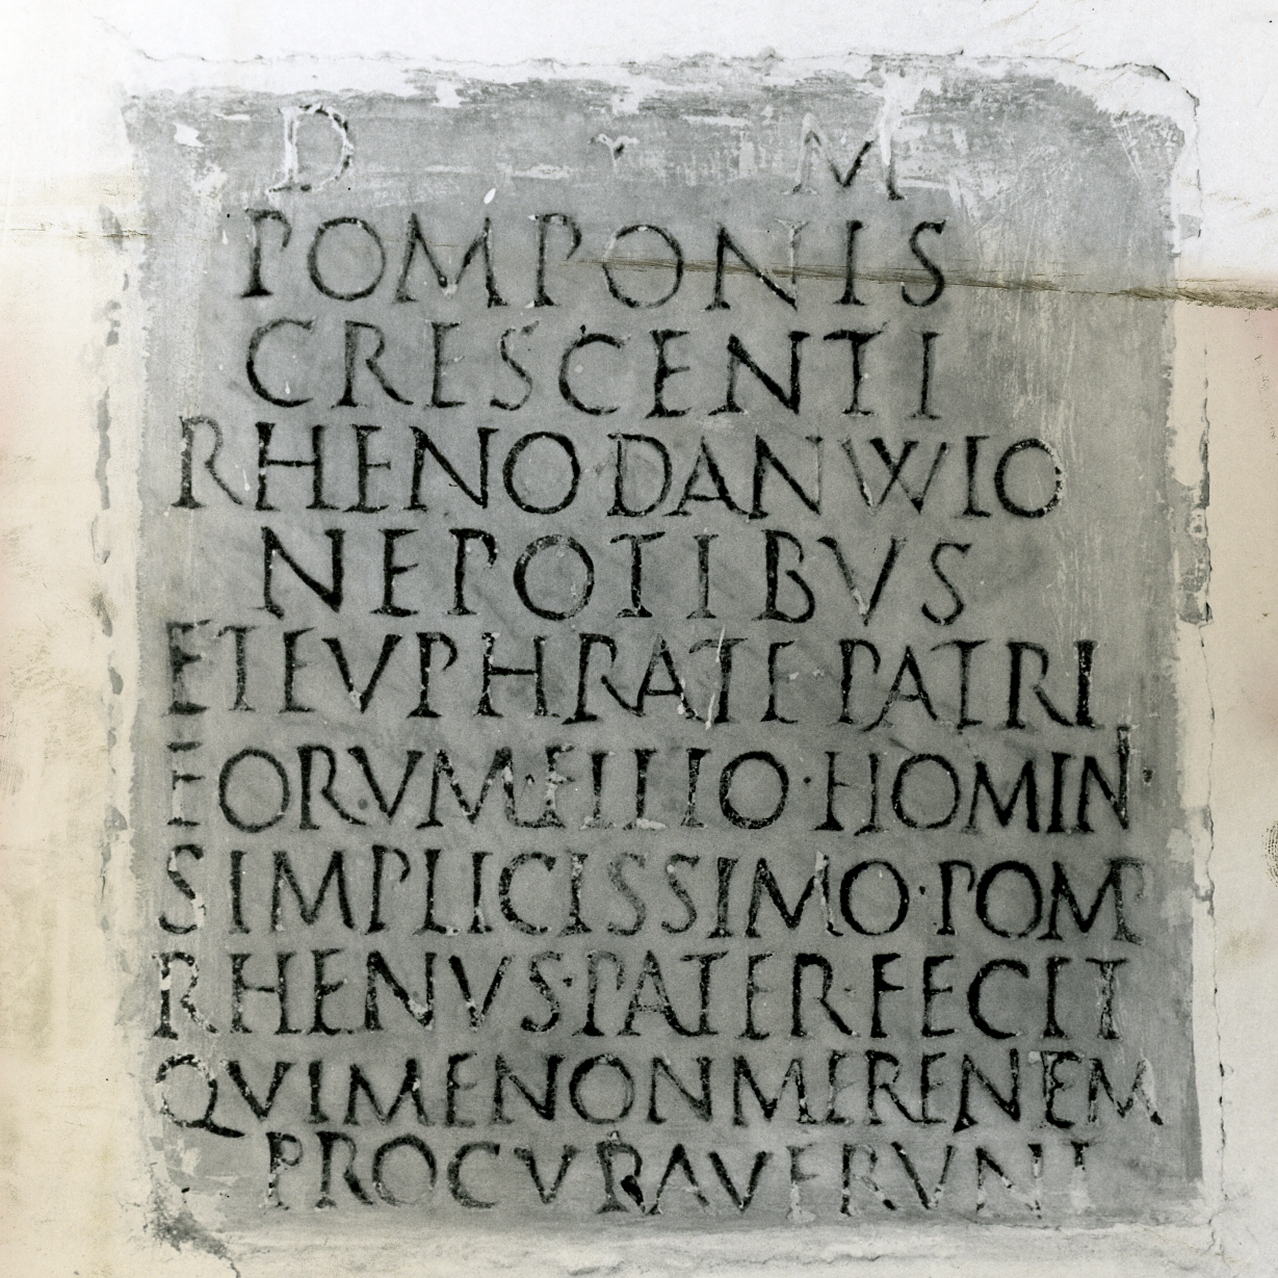 D M
POMPONIS
CRESCENTI
RHENO DANVVIO
NEPOTIBVS
ET EVPHRATE PATRI
EORVM·FILIO·HOMIN·
SIMPLICISSIMO·POMP
RHENVS·PATER·FECIT
QVI ME NON MERENEM
PROCVRAVERVNT